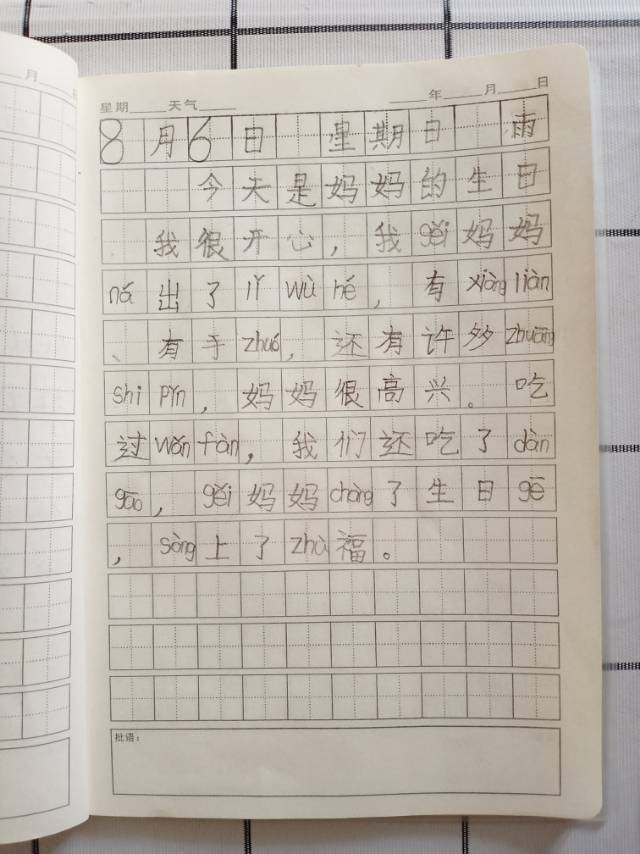 月
星期 天气 年 月 日
8月6日 星期日 雨
今天是妈妈的生日
我很开心，我gěi妈妈
ná出了lǐ wù hé，有xiàng liàn
、有手zhuó，还有许多zhuāng
shi pǐn，妈妈很高兴。吃
过wǎn fàn，我们还吃了dàn
gāo，gěi妈妈chàng了生日gē
，sòng上了zhù福。
批语：